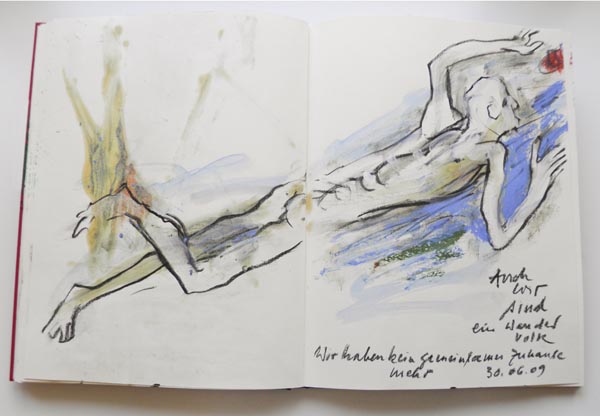 Auch
wir
sind
ein Wander
volk
Wir haben kein gemeinsames Zuhause
mehr 30.06.09